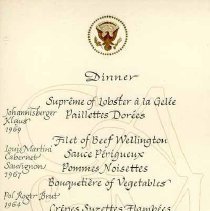 Dinner
Suprême of Lobster à la Gelée
Johannisberger
Klaus
1969
Paillettes Dorées
Filet of Beef Wellington
Louis Martini
Cabernet
Sauvignon
1967
Sauce Périgueux
Pommes Noisettes
Bouquetière of Vegetables
Pol Roger Brut
1964
Crêpes Suzettes Flambées